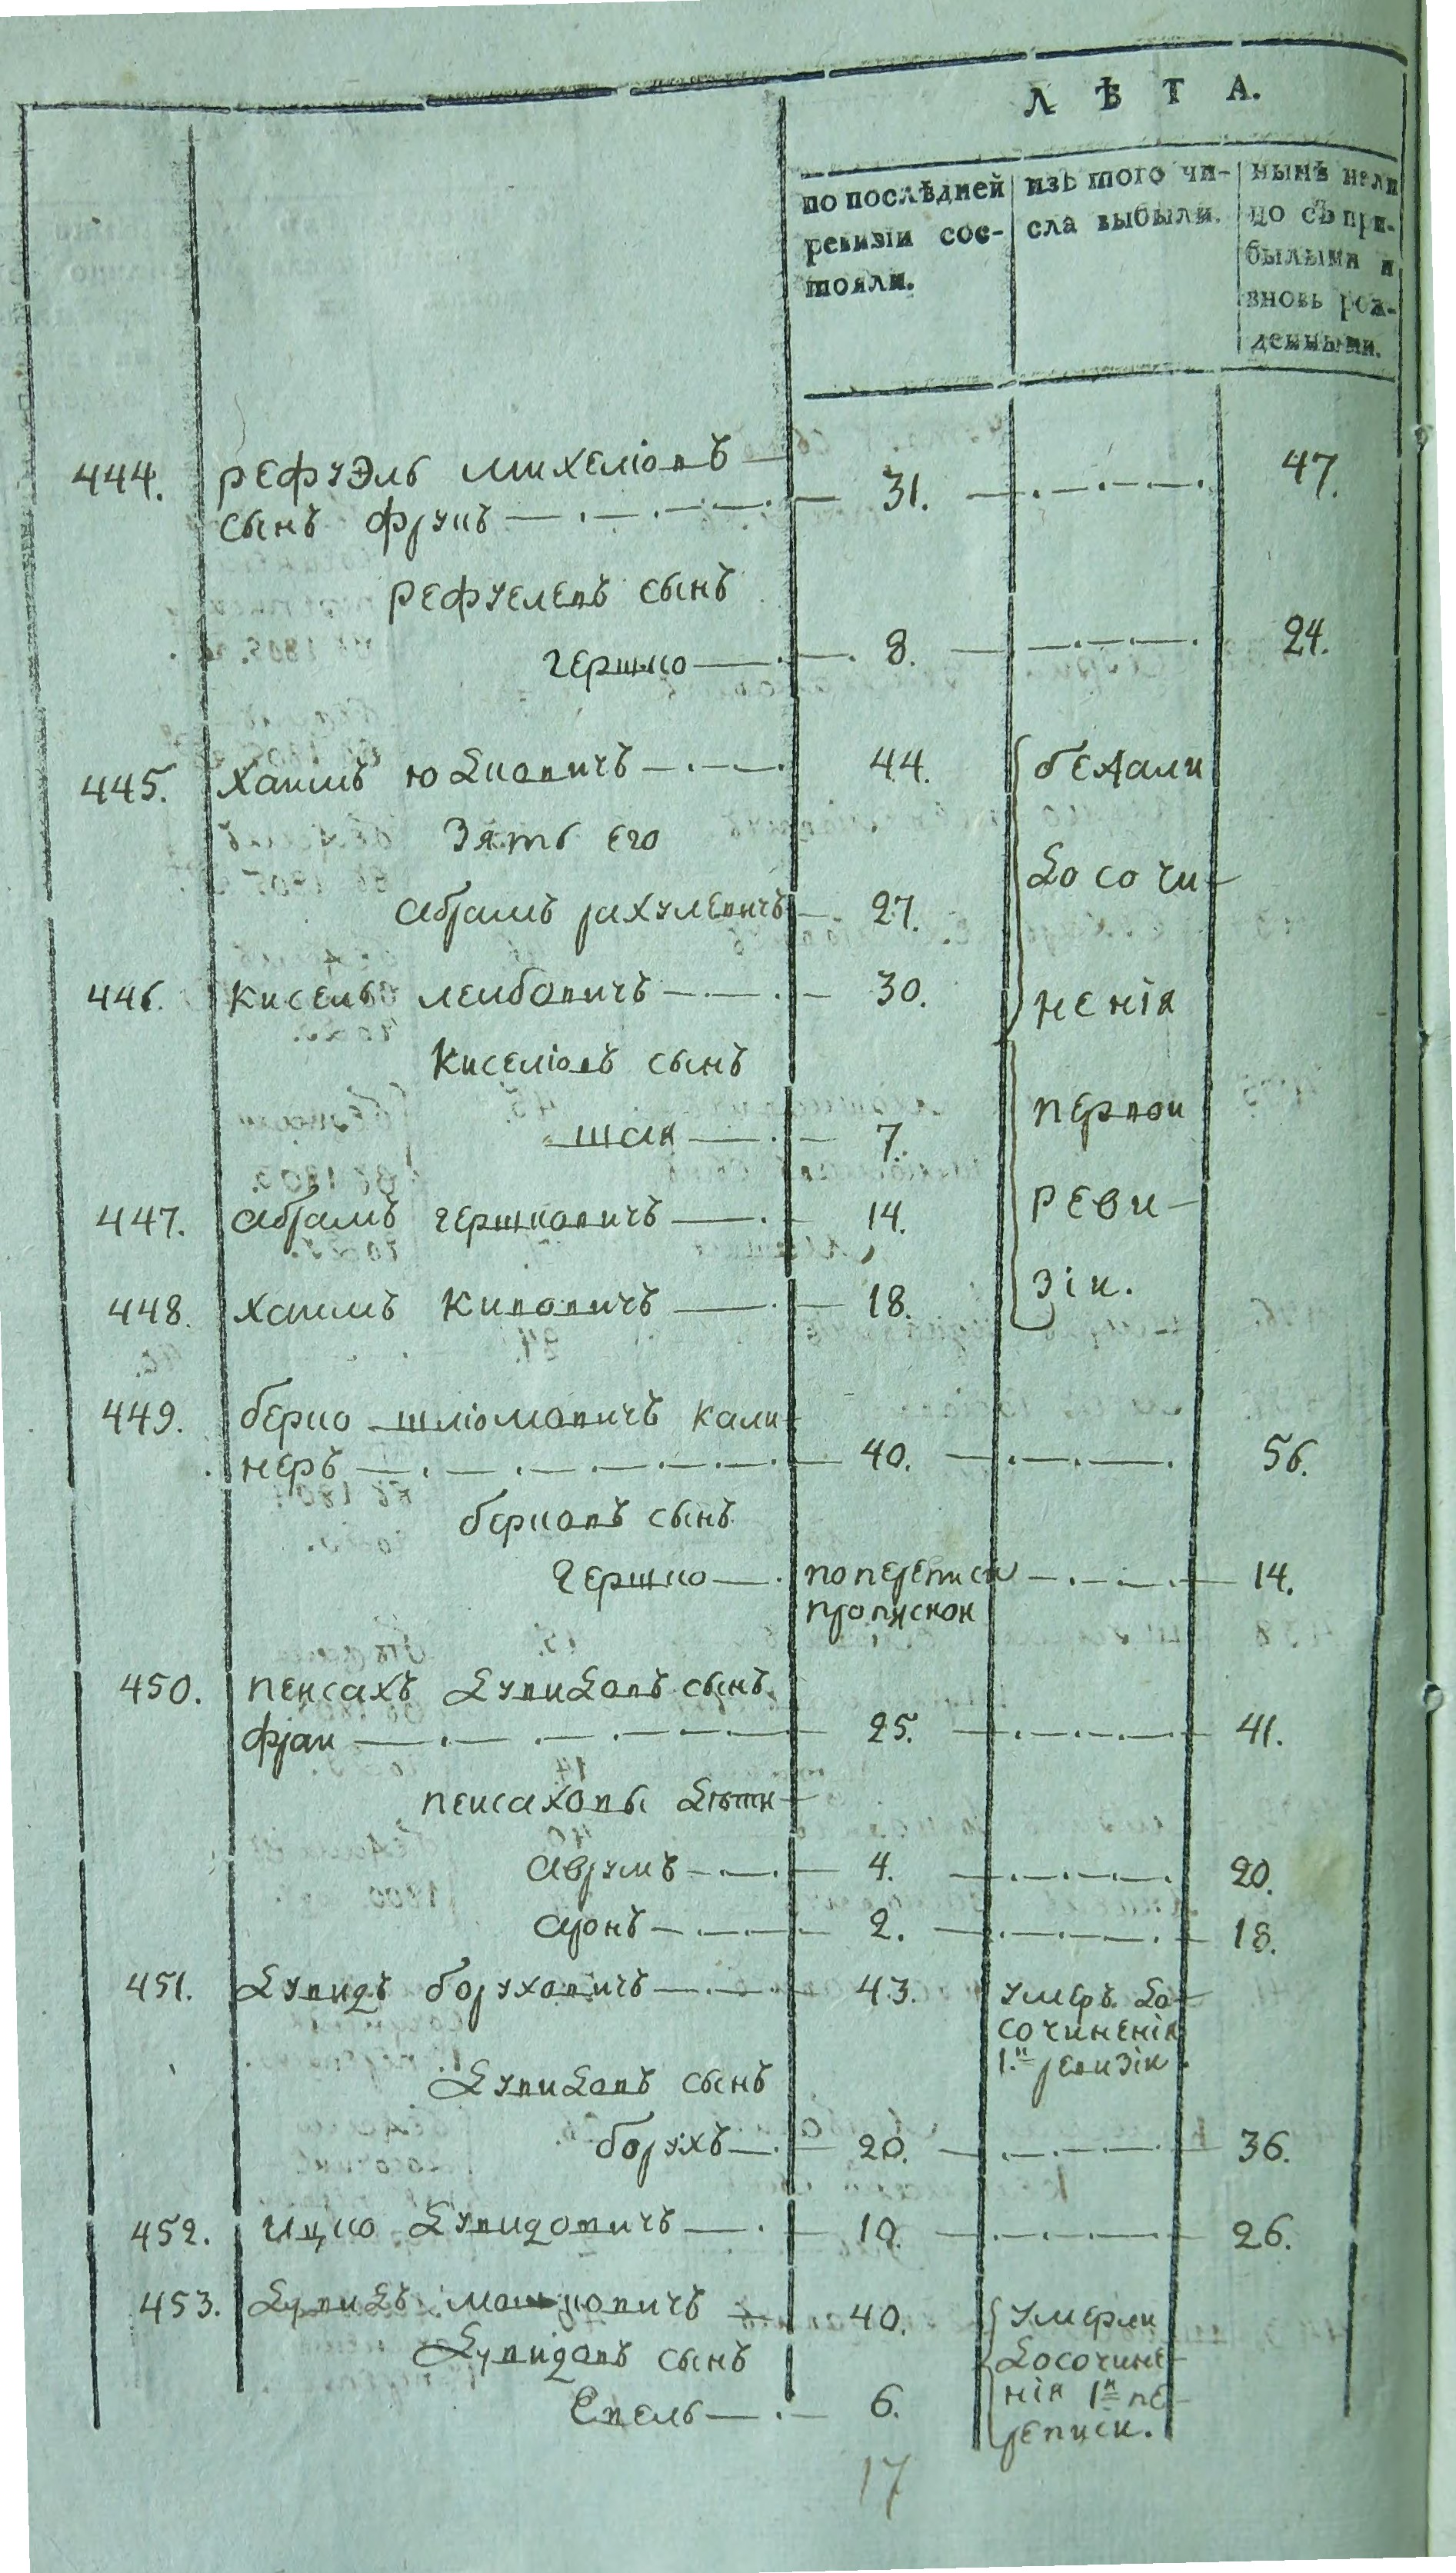 ЛѢТА.
по послѣдней ревизіи сос-
тояли.
изъ того чи-
сла выбыли.
нынѣ нали
цо съ при-
былыми и
вновь рож-
денными.
444. Рефуэль Михеліовъ
сынъ Фрукъ 31. 47.
Рефуелевъ сынъ
Гершко 8. 24.
445. Хаимъ Юдковичъ 44. бежали
Зять его
до сочи-
Абрамъ Рахулевичъ 27.
446. Кисель Лейбовичъ 30. ненія
Киселіовъ сынъ
первой
Шая 7.
447. Абрамъ Гершковичъ 14. реви-
448. Хаимъ Кивовичъ 18. зіи.
449. Берко Шліомовичъ Кали
неръ 40. 56.
Берковъ сынъ
Гершко по переписи 14.
пропускон
450. Пейсахъ Дувидовъ сынъ
Фрай 25. 41.
Пейсаховы дѣти
Аврумъ 4. 20.
Аронъ 2. 18.
451. Дувидъ Боруховичъ 43. умеръ до
сочиненія
1.й ревизіи
Дувидовъ сынъ
Борухъ 20. 36.
452. Ицко Дувидовичъ 10. 26.
453. Дувидъ Мошковичъ 40. умерли
Дувидовъ сынъ
до сочине-
нія 1й пе-
Евель 6.
реписи.
17